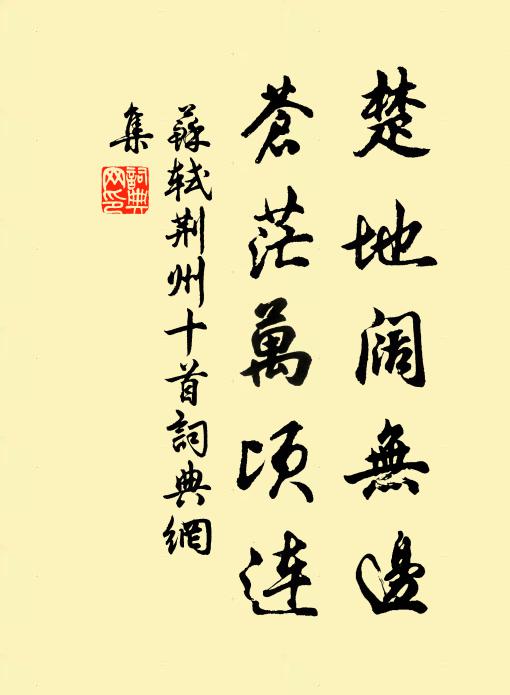 楚地阔無邊
蒼茫萬頃連
蘇軾荆州十首詞典網
集
詞典網印